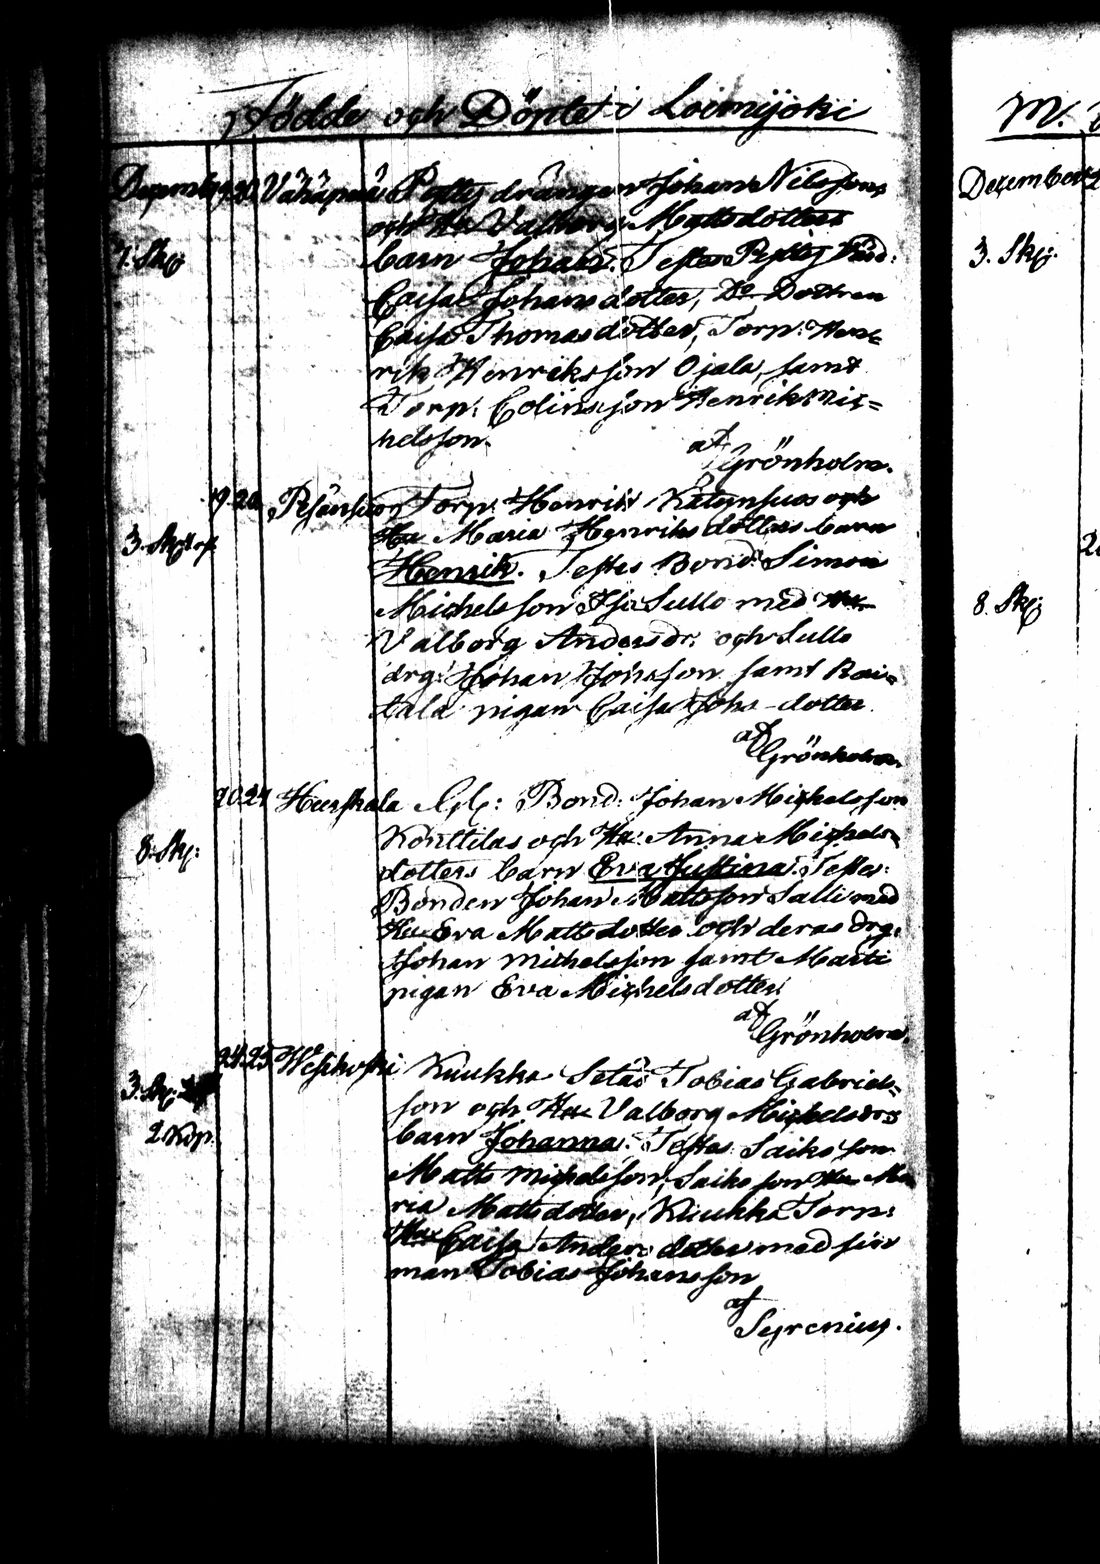 Födde och Döpte i Loimijoki
Decemb. 19. 20. Vähäperä Pyttÿ drängen Johan Nilssons
och Hu Valborg Mattsdotters
7. Skp barn Johan. Testes Pyttÿ Värd:
Caisa Johansdotter, Do Dottren
Caisa Thomasdotter, Torp: Hen=
rik Henriksson Ojala, samt
Torp: Colinsjon Henrik Mic=
helsson.
af Grönholm.
19. 20. Torp: Henrik och
Hu Maria Henriks dotters barn
Henrik. Testes Bond: Simon
Michelsson Iso Sullo med Hu
Valborg Andersdr: och Sullo
drg: Johan Johsson samt Rai=
tala pigan Caisa Johs-dotter.
af Grönholm.
20. 21. Hirsikala Bond: Johan Michelsson
Konttilas och Hu: Anna Michels=
8. Skp: dotters barn Eva Justina. Testes:
Bonden Johan Mattsson Salli med
Hu Eva Mattsdotter och deras drg:
Johan Michelsson samt Martti
pigan Eva Michelsdotter.
af Grönholm.
24. 25. Wesikoski Kuukka Tobias Gabriels=
3. Skp: son och Hu Valborg Michelsdrs
2 Kop. barn Johanna. Testes: Saikison
Matts Michelsson, Saikison Hu Ma
ria Mattsdotter, Kuukka Torp:
Hu Caisa Anders dotter med sin
man Tobias Johansson
af Syrenius.
M.
December
3. Skp:
8. Skp: